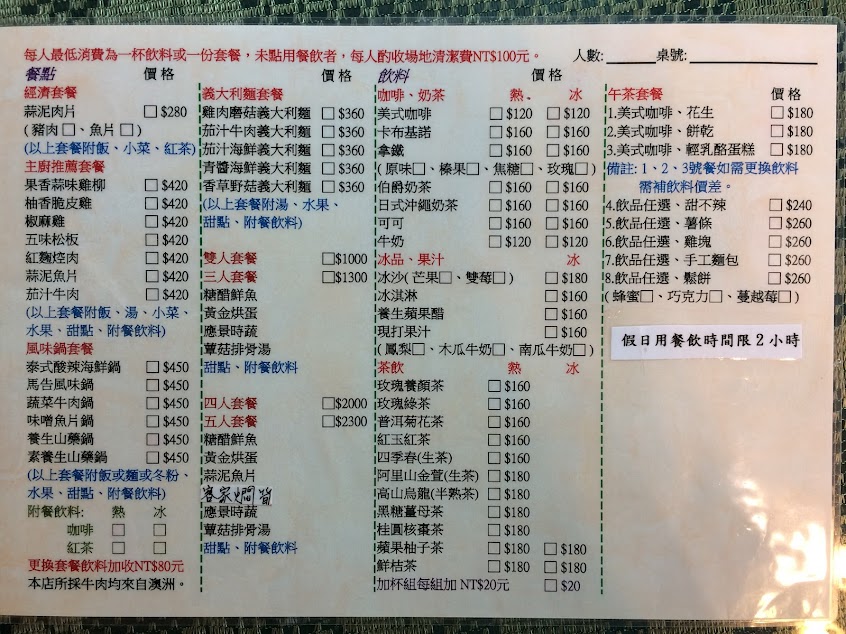 每人最低消費為一杯飲料或一份套餐，未點用餐飲者，每人酌收場地清潔費NT$100元。 人數: 桌號:
餐點 價格
經濟套餐
蒜泥肉片 □ $280
(豬肉□、魚片□)
(以上套餐附飯、小菜、紅茶)
主廚推薦套餐
果香蒜味雞柳 □ $420
柚香脆皮雞 □ $420
椒麻雞 □ $420
五味松板 □ $420
紅麴焢肉 □ $420
蒜泥魚片 □ $420
茄汁牛肉 □ $420
(以上套餐附飯、湯、小菜、
水果、甜點、附餐飲料)
風味鍋套餐
泰式酸辣海鮮鍋 □ $450
馬告風味鍋 □ $450
蔬菜牛肉鍋 □ $450
味噌魚片鍋 □ $450
養生山藥鍋 □ $450
素養生山藥鍋 □ $450
(以上套餐附飯或麵或冬粉、
水果、甜點、附餐飲料)
附餐飲料: 熱 冰
咖啡 □ □
紅茶 □ □
更換套餐飲料加收NT$80元
本店所採牛肉均來自澳洲。
價格
義大利麵套餐
雞肉磨菇義大利麵 □ $360
茄汁牛肉義大利麵 □ $360
茄汁海鮮義大利麵 □ $360
青醬海鮮義大利麵 □ $360
香草野菇義大利麵 □ $360
(以上套餐附湯、水果、
甜點、附餐飲料)
雙人套餐 □$1000
三人套餐 □$1300
糖醋鮮魚
黃金烘蛋
應景時蔬
蕈菇排骨湯
甜點、附餐飲料
四人套餐 □$2000
五人套餐 □$2300
糖醋鮮魚
黃金烘蛋
蒜泥魚片
應景時蔬
蕈菇排骨湯
甜點、附餐飲料
飲料 價格
咖啡、奶茶 熱、 冰
美式咖啡 □ $120 □ $120
卡布基諾 □ $160 □ $160
拿鐵 □ $160 □ $160
(原味□、榛果□、焦糖□、玫瑰□)
伯爵奶茶 □ $160 □ $160
日式沖繩奶茶 □ $160 □ $160
可可 □ $160 □ $160
牛奶 □ $120 □ $120
冰品、果汁 冰
冰沙(芒果□、雙莓□) □ $180
冰淇淋 □ $160
養生蘋果醋 □ $160
現打果汁 □ $160
(鳳梨□、木瓜牛奶□、南瓜牛奶□)
茶飲 熱 冰
玫瑰養顏茶 □ $160
玫瑰綠茶 □ $160
普洱菊花茶 □ $160
紅玉紅茶 □ $160
四季春(生茶) □ $160
阿里山金萱(生茶) □ $180
高山烏龍(半熟茶) □ $180
黑糖薑母茶 □ $180
桂圓核棗茶 □ $180
蘋果柚子茶 □ $180 □ $180
鮮桔茶 □ $180 □ $180
加杯組每組加 NT$20元 □ $20
午茶套餐 價格
1.美式咖啡、花生 □ $180
2.美式咖啡、餅乾 □ $180
3.美式咖啡、輕乳酪蛋糕 □ $180
備註: 1、2、3號餐如需更換飲料
需補飲料價差。
4.飲品任選、甜不辣 □ $240
5.飲品任選、薯條 □ $260
6.飲品任選、雞塊 □ $260
7.飲品任選、手工麵包 □ $260
8.飲品任選、鬆餅 □ $260
(蜂蜜□、巧克力□、蔓越莓□)
假日用餐飲時間限2小時